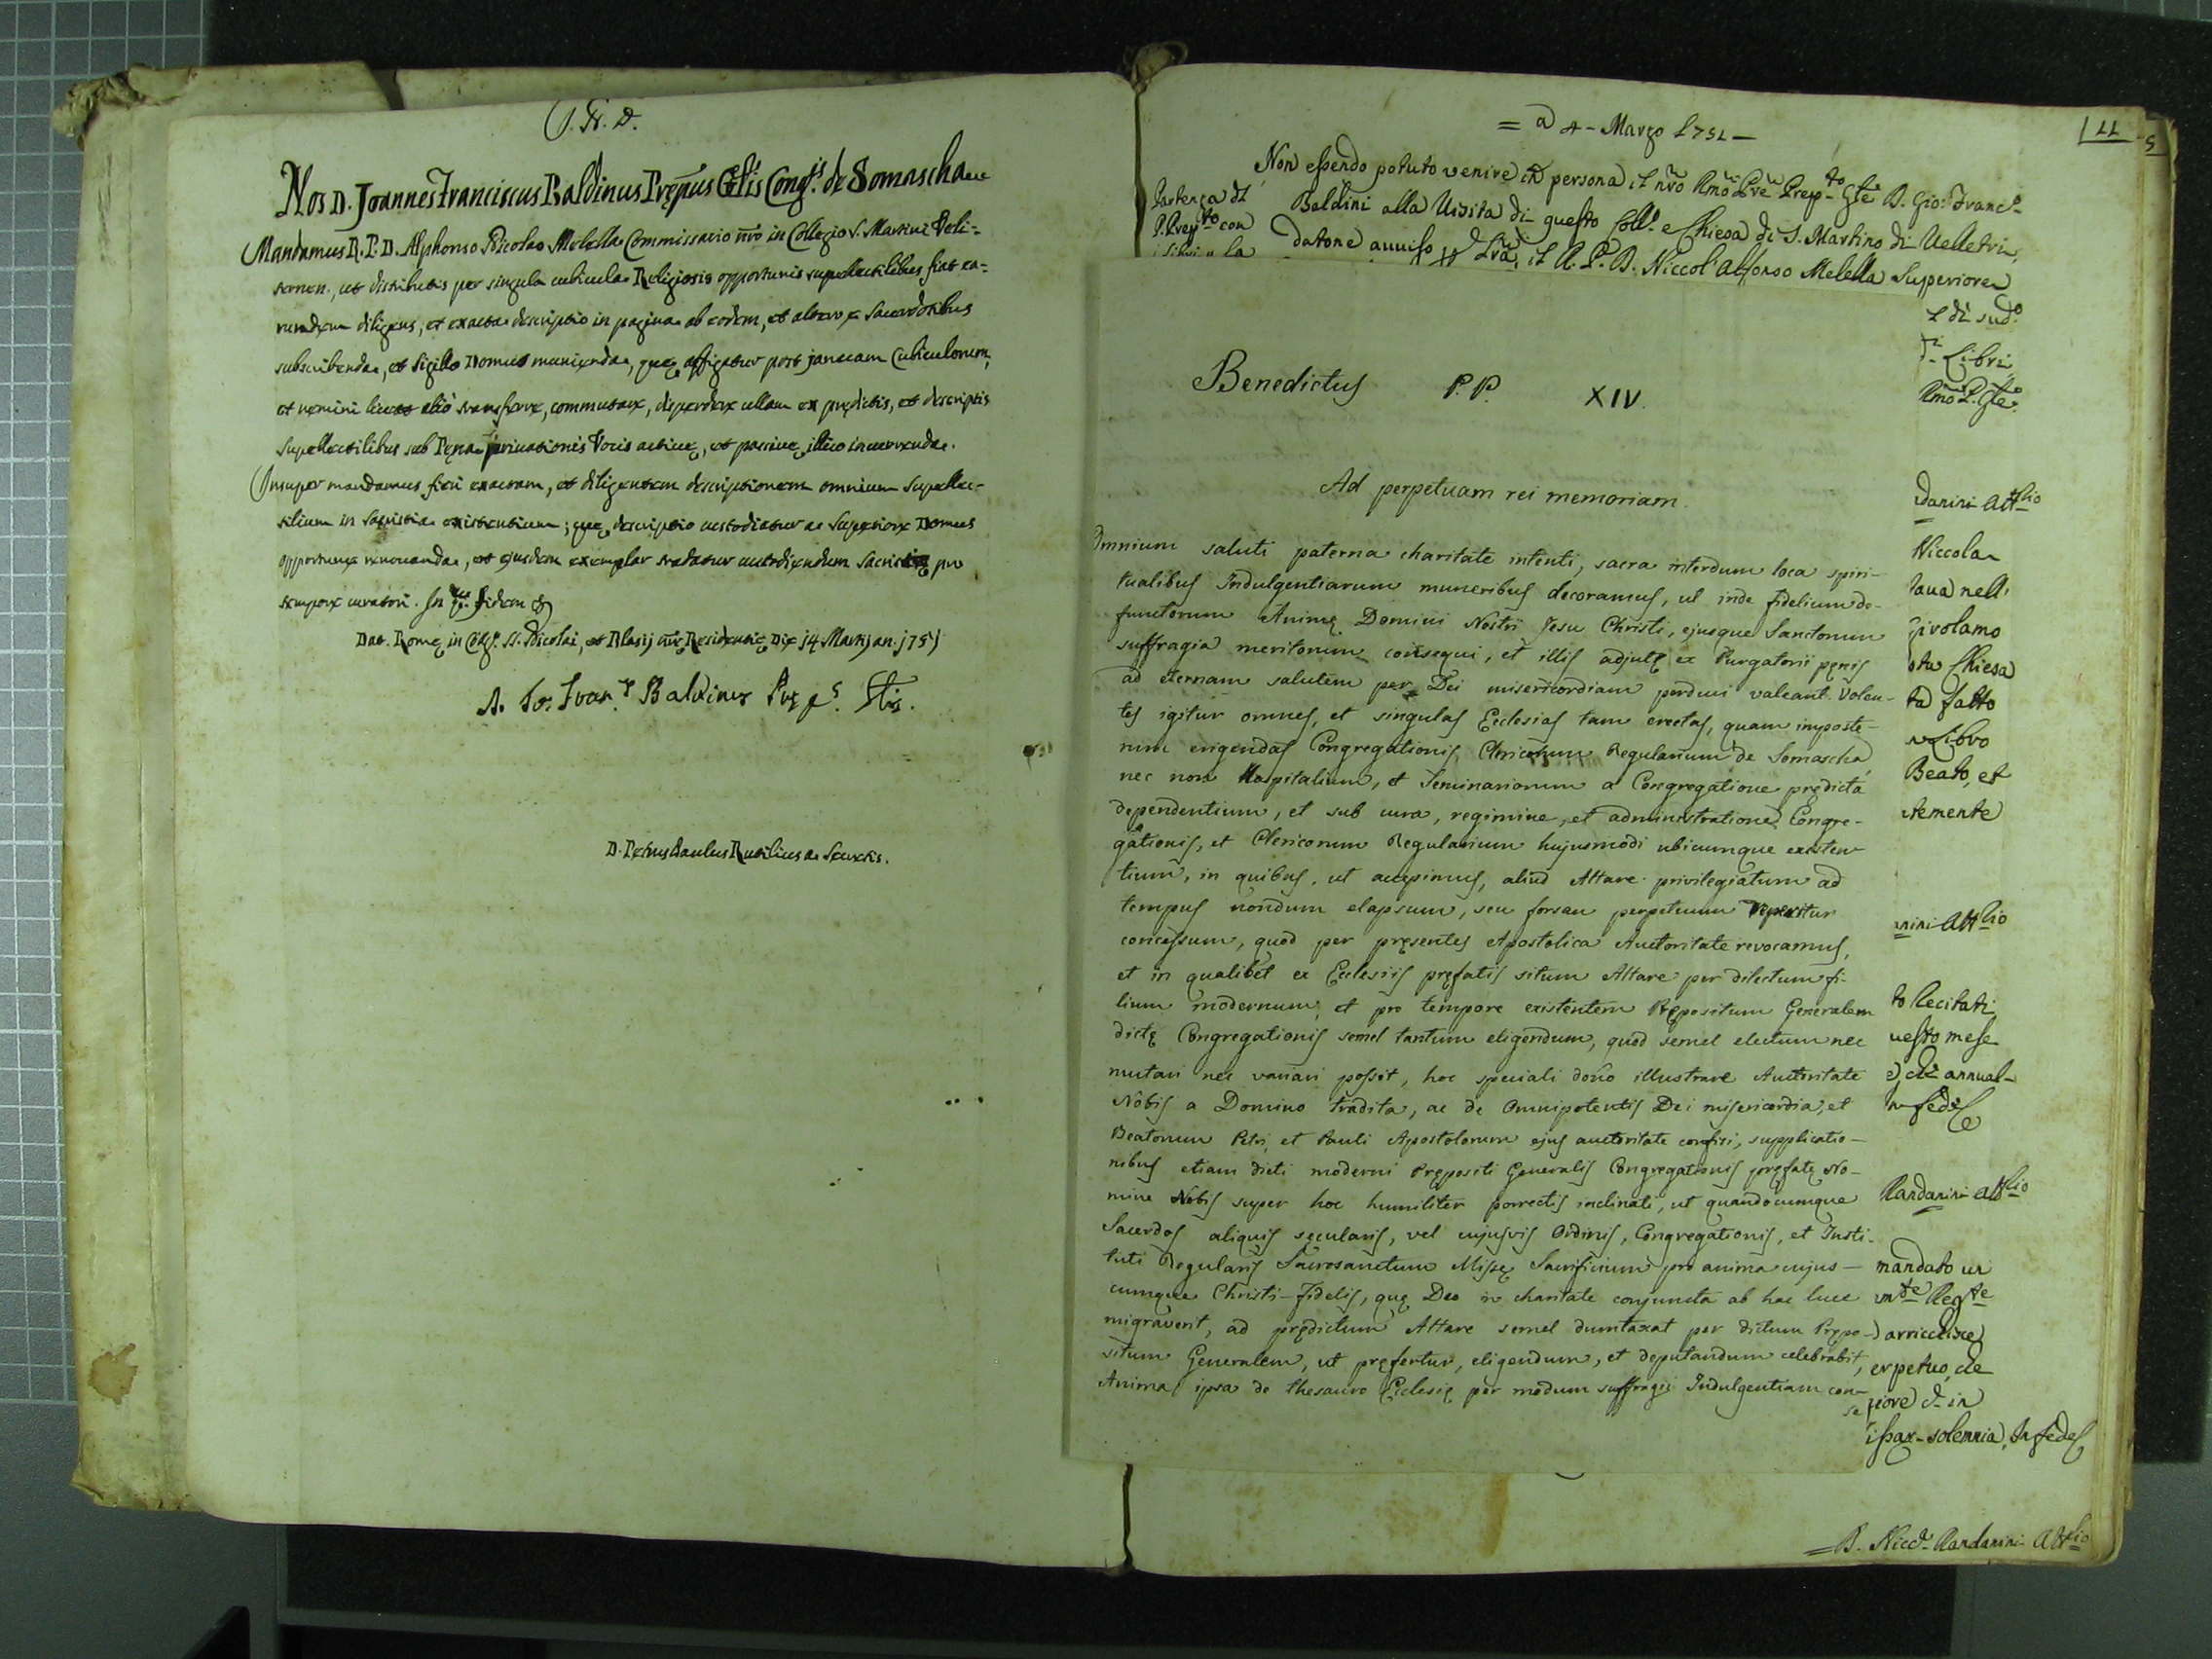 J. N. D.
Nos D. Joannes Franciscus Baldinus Pręp.us Gn̄lis Cong.is de Somascha &c
Mandamus R. P. D. Alphonso Nicolao Melella Commissario nr̄o in Collegio S. Martini Veli=
ternen., ut distributis per singula cubicula Religiosis opportunis supellectilibus fiat ea=
rumdem diligens, et exacta descriptio in pagina ab eodem, et altero e Sacerdotibus
subscribenda, et Sigillo Domus munienda, quę affigatur post januam Cubiculorum,
et nemini liceat aliò transferre, commutare, disperdere ullam ex prędictis, et descriptis
Supellectilibus sub Pęna privationis Vocis activę, et passivę illico incurrenda.
Insuper mandamus fieri exactam, et diligentem descriptionem omnium Supellec-
tilium in Sacristia existentium; quę descriptio custodiatur a Superiore Domus
opportune renovanda, et ejusdem exemplar tradatur custodiendum Sacristię pro
tempore curatori. In quor. fidem &
Dat. Romę in Coll.o SS. Nicolai, et Blasij nr̄ę Residentię Die 14 Martij an. 1751
D. Jo: Fran.s Baldinus Pręp.s Gn̄lis.
D. Petrus Paulus Rutilius a Secretis.
11
5
= a 4 - Marzo 1751 -
Non essendo potuto venire in persona il nr̄o Rm̄o Pr̄e Prep.to Gn̄le D. Gio: Franc.o
Baldini alla Visita di questo Coll.o e Chiesa di S. Martino di Velletri,
datone avviso il A. P. D. Niccol' Alfonso Melella Superiore
Partenza di
P. Prep.to con
la
Benedictus P. P. XIV.
Ad perpetuam rei memoriam.
Omnium saluti paterna charitate intenti, sacra interdum loca spiri-
tualibus Indulgentiarum muneribus decoramus, ut inde fidelium de-
functorum Animę Domini Nostri Jesu Christi, ejusque Sanctorum
suffragia meritorum consequi, et illis adjutę ex Purgatorii pęnis
ad eternam salutem per Dei misericordiam perduci valeant. Volen-
tes igitur omnes, et singulas Ecclesias tam erectas, quam imposte-
rum erigendas Congregationis Clericorum Regularium de Somascha,
nec non Hospitalium, et Seminariorum a Congregatione prędicta
dependentium, et sub cura, regimine, et administratione Congre-
gationis, et Clericorum Regularium hujusmodi ubicumque existen-
tium, in quibus, ut accepimus, aliud Altare privilegiatum ad
tempus nondum elapsum, seu forsan perpetuum reperitur
concessum, quod per pręsentes Apostolica Auctoritate revocamus,
et in qualibet ex Ecclesiis pręfatis situm Altare per dilectum fi-
lium modernum, et pro tempore existentem Prępositum Generalem
dictę Congregationis semel tantum eligendum, quod semel electum nec
mutari nec variari possit, hoc speciali dono illustrare Auctoritate
Nobis a Domino tradita, ac de Omnipotentis Dei misericordia, et
Beatorum Petri, et Pauli Apostolorum ejus auctoritate confisi, supplicatio-
nibus etiam dicti moderni Prępositi Generalis Congregationis pręfatę No-
mine Nobis super hoc humiliter porrectis inclinati, ut quandocumque
Sacerdos aliquis sęcularis, vel cujusvis Ordinis, Congregationis, et Insti-
tuti Regularis Sacrosanctum Missę Sacrificium pro anima cujus-
cumque Christi-fidelis, quę Deo in charitate conjuncta ab hac luce
migraverit, ad prędictum Altare semel dumtaxat per dictum Prępo-
situm Generalem, ut pręfertur, eligendum, et deputandum celebrabit,
Anima ipsa de thesauro Ecclesię per modum suffragii Indulgentiam con-
se
2 di sud.o
Libri
Rm̄o P. Gn̄le
danini Att.rio
Niccola
tava nell'
Girolamo
sta Chiesa
tad fatto
Libro
Beato, et
temente
nini Att.rio
to Recitati
uesto mese
e, ch' annual-
In fede
Randanini Att.rio
mandato un
Reg.te
arricchisce
erpetuo, che
riore & in
issar- solennia, In fede
= D. Nicc.a Randanini Att.rio